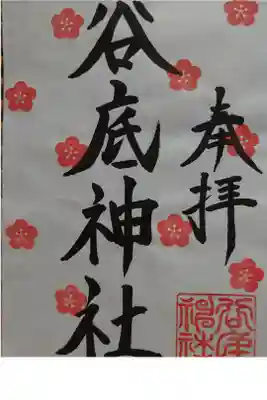 奉拝
谷底神社
谷底
神社